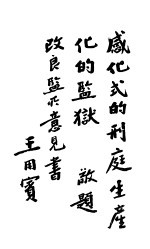 感化式的刑庭生產
化的監獄 敬題
改良監所意見書
王用賓